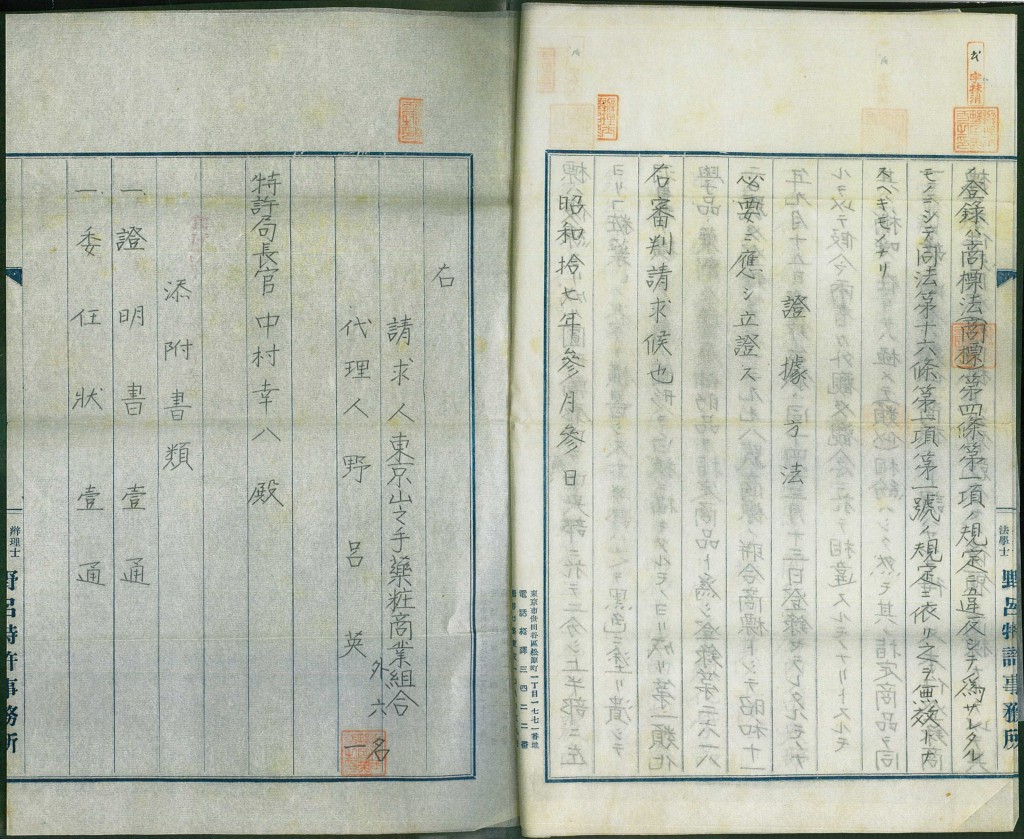 登録ハ商標法(商標)第四條第一項ノ規定ニ違反シテ為サレタル
モノニシテ同法第十六條第一項第一號ノ規定ニ依リ之ヲ無效トナ
スヘキモノナリ
證據方法
必要ニ應シ立證ス
右審判請求候也
昭和拾七年參月參日
法學士 野呂特許事務所
東京市世田谷區松原町一丁目一七七一番地
電話松澤三四二二番
右
請求人東京山之手藥粧商業組合
外六名
代理人野呂英一
特許局長官中村幸八殿
添附書類
一證明書壹通
一委任狀壹通
辨理士 野呂特許事務所